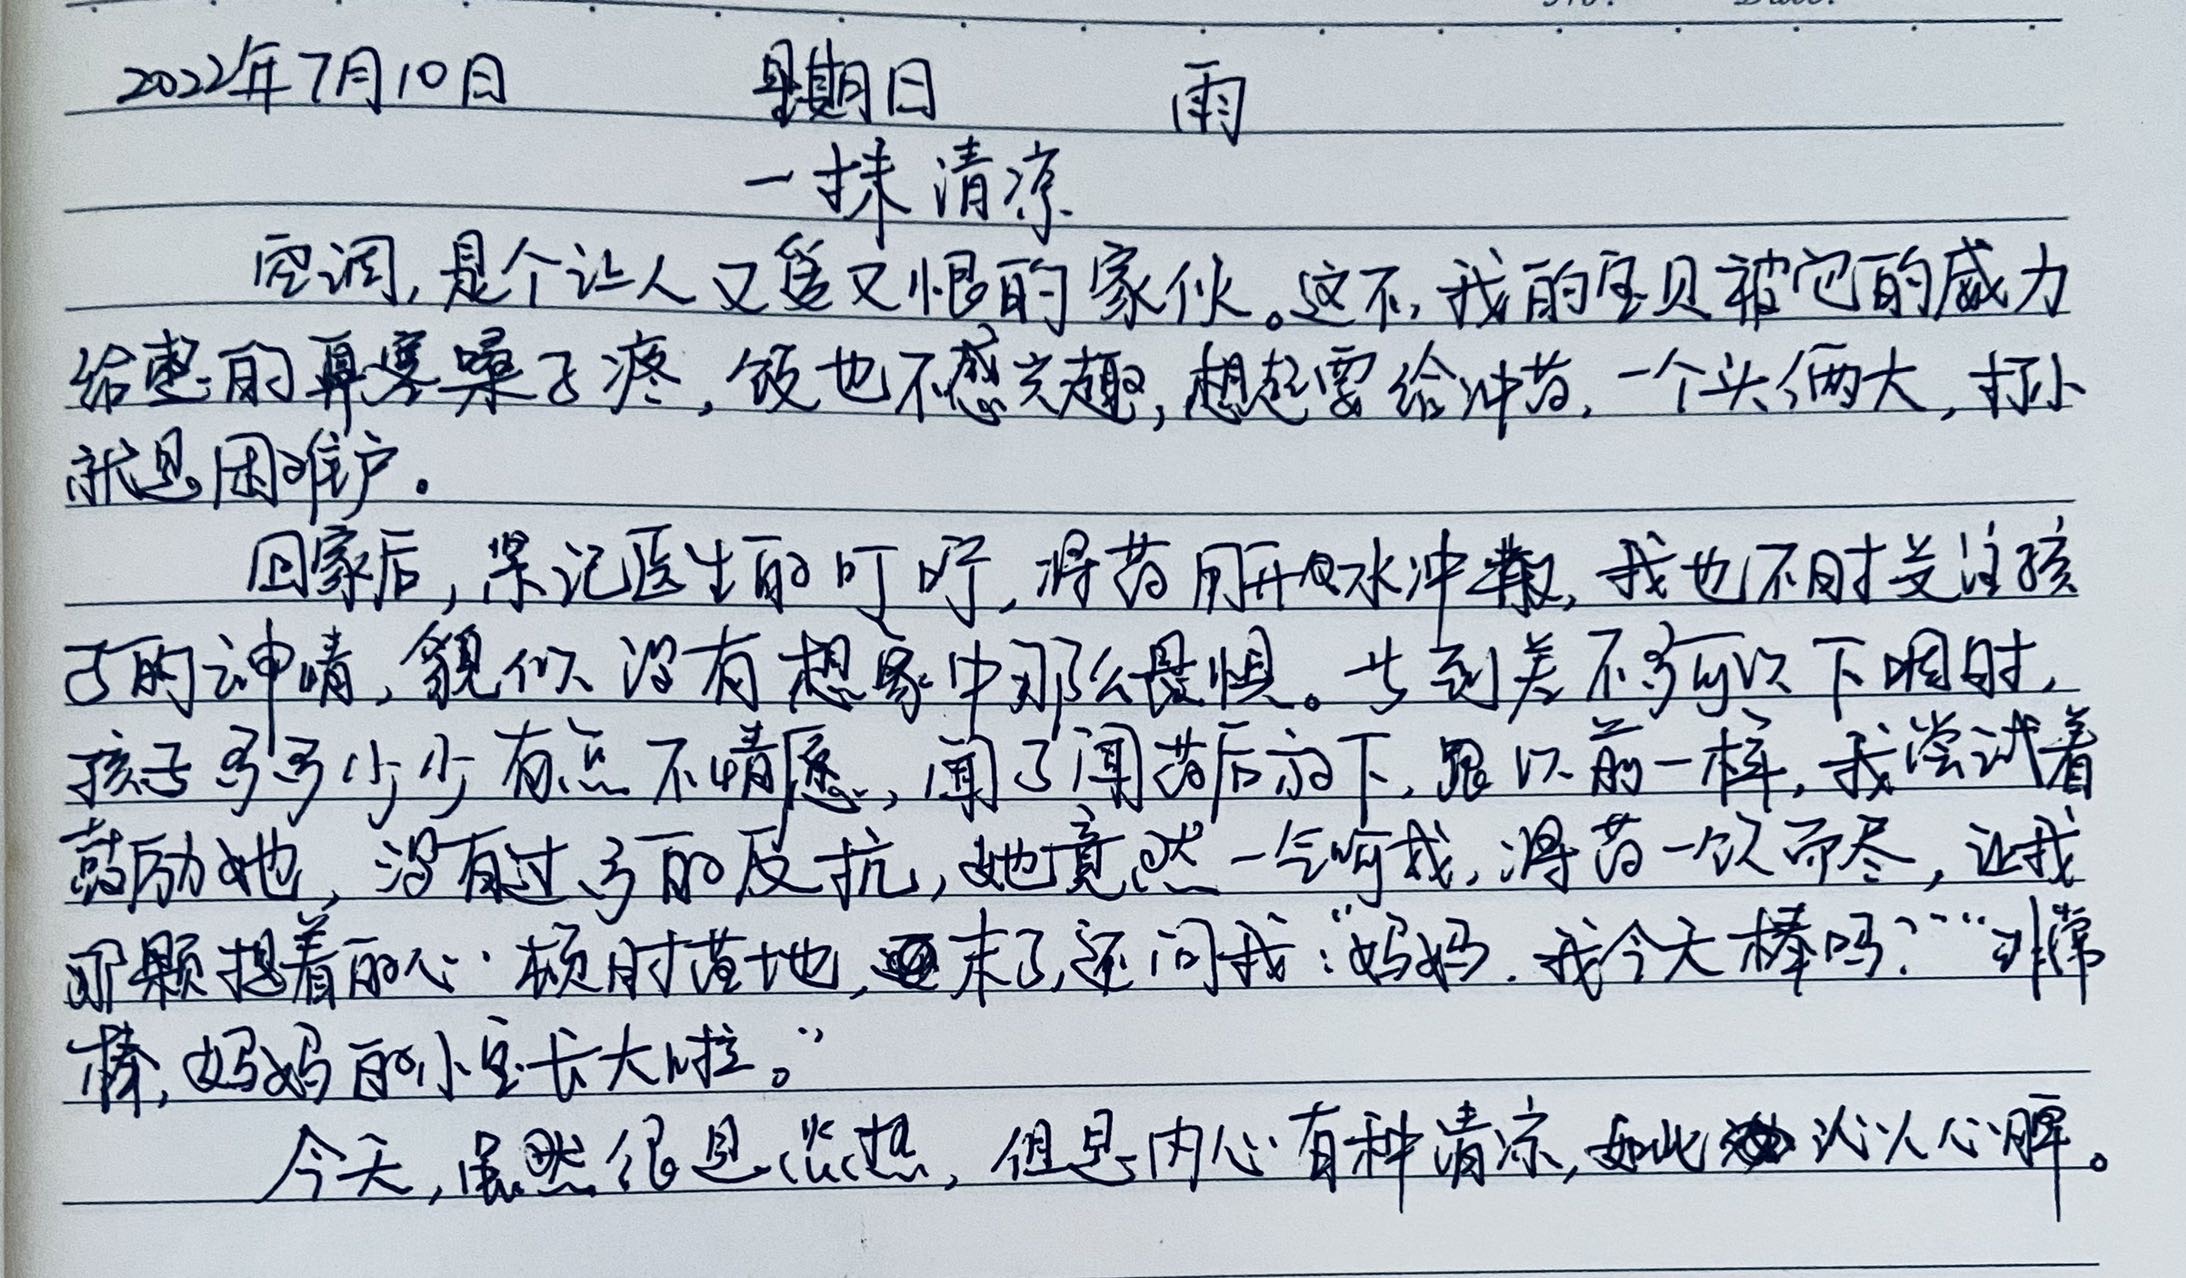 2022年7月10日 星期日 雨
一抹清凉
空调,是个让人又爱又恨的家伙。这不,我的宝贝被它的威力
给整的鼻塞嗓子疼,饭也不感兴趣,想起要给冲药,一个头俩大,打小
就是困难户。
回家后,紧记医生的叮咛,将药用开水冲散,我也不时关注孩
子的神情,貌似没有想象中那么畏惧。等到差不多可以下咽时,
孩子多多少少有点不情愿,闻了闻药后放下,跟以前一样,我尝试着
鼓励她,没有过多的反抗,她竟然一气呵成,将药一饮而尽,让我
那颗揪着的心顿时落地,末了,还问我:“妈妈,我今天棒吗?”“非常
棒,妈妈的小宝长大啦。”
今天,虽然很是炎热,但是内心有种清凉,如此沁人心脾。